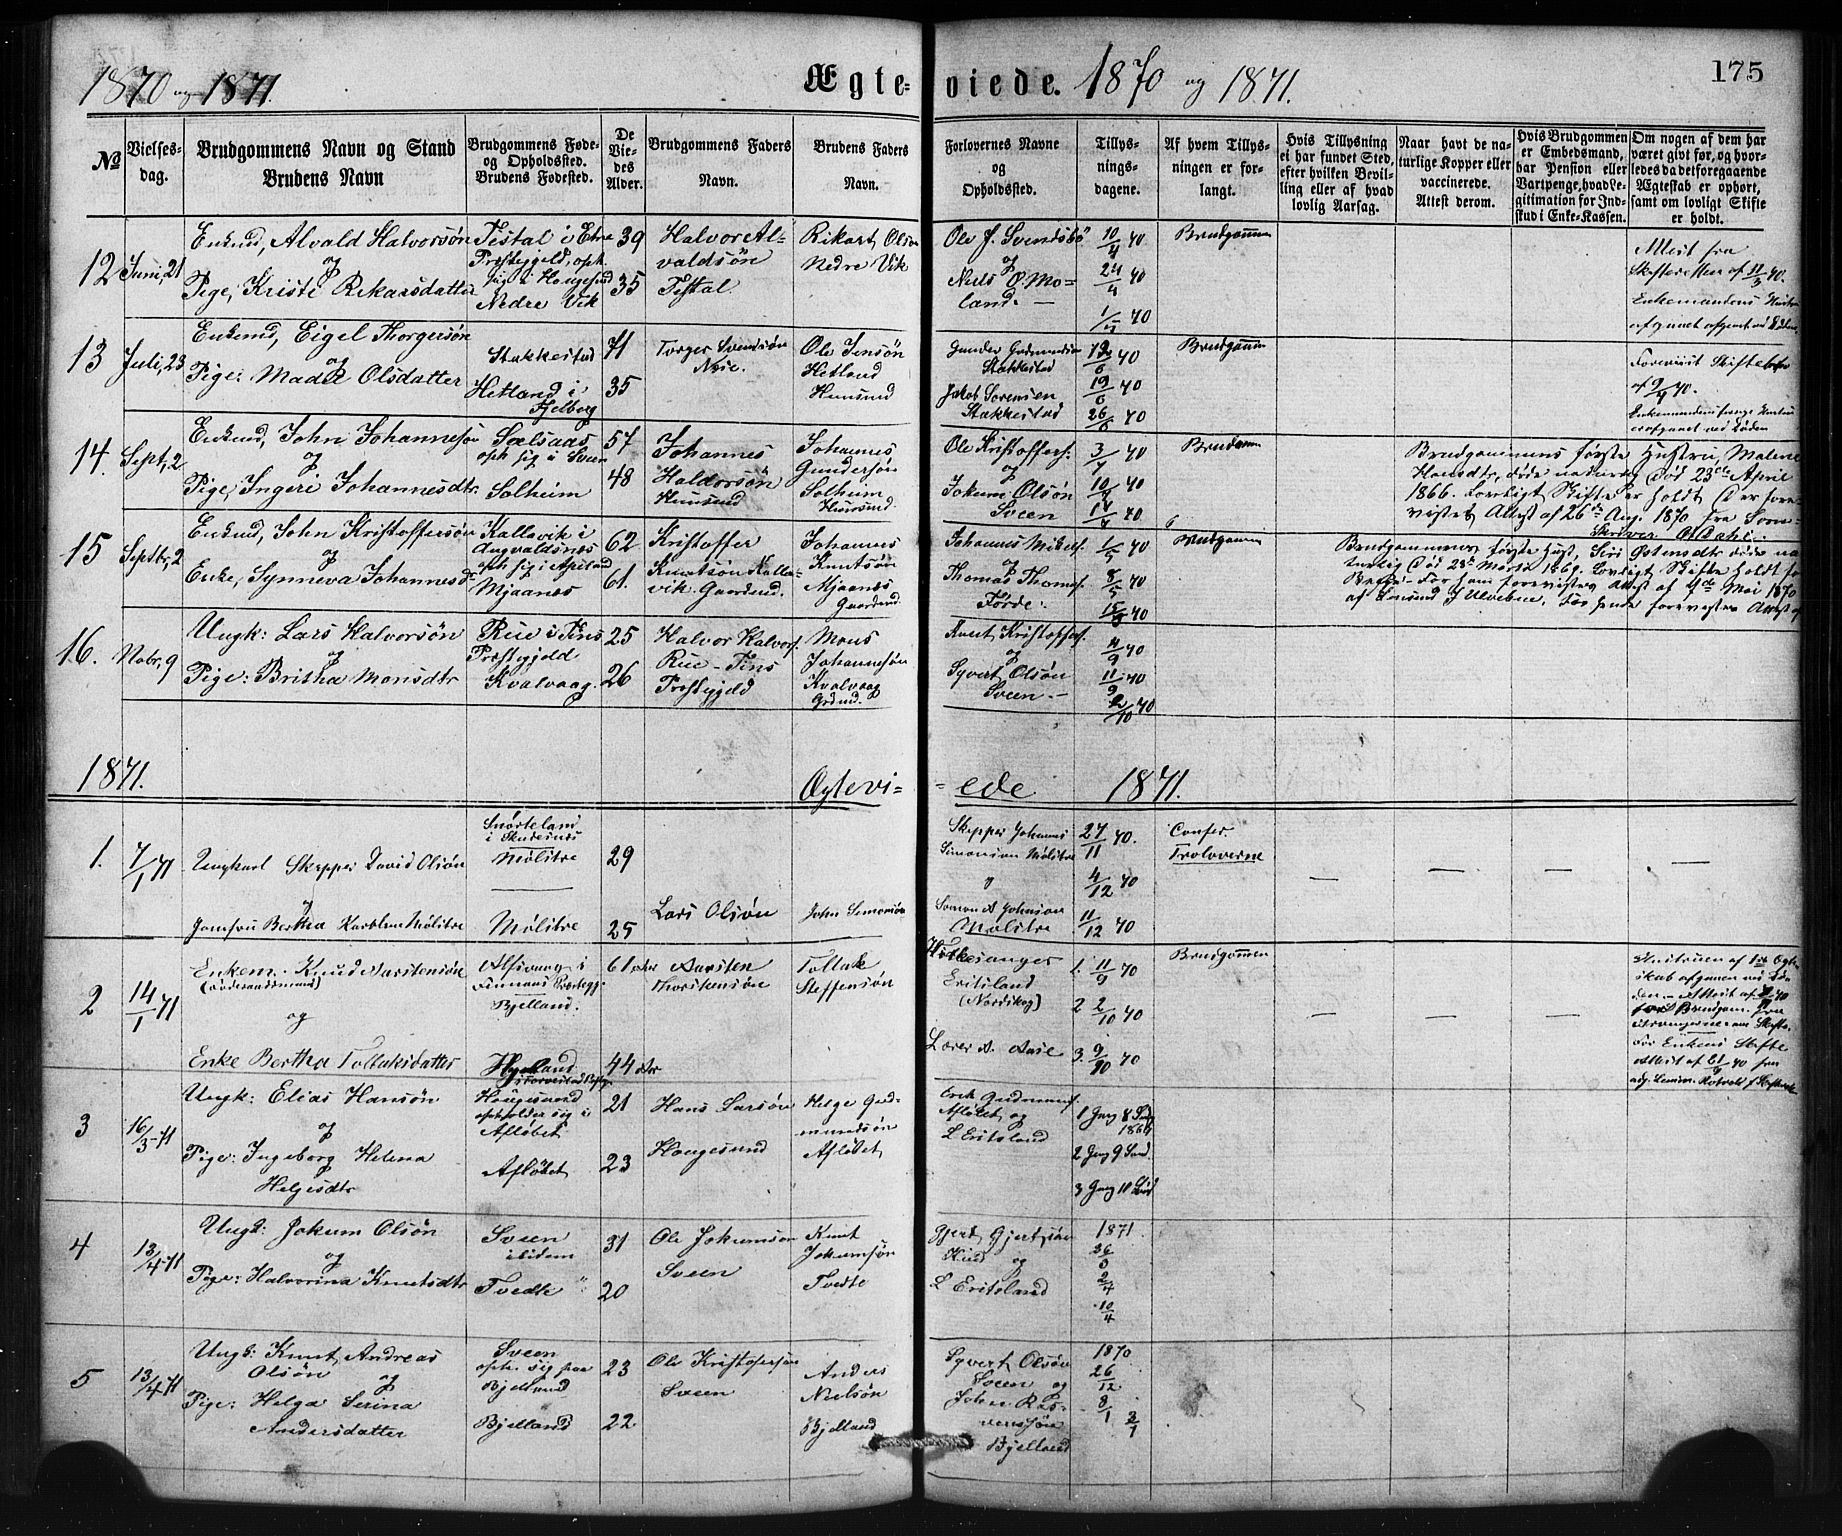 1870 og 1871. Ægte-
viede. 1870 og 1871.
175
№
Vielses-
dag.
Brudgommens Navn og Stand
Brudens Navn
Brudgommens Føde-
og Opholdssted.
Brudens Fødested.
De
Vie-
des
Alder.
Brudgommens Faders
Navn.
Brudens Faders
Navn.
Forlovernes Navne
og
Opholdssted.
Tillys-
nings-
dagene.
Af hvem Tillys-
ningen er for-
langt.
Hvis Tillysning
ei har fundet Sted,
efter hvilken Bevil-
ling eller af hvad
lovlig Aarsag.
Naar havt de na-
turlige Kopper eller
vaccinerede.
Attest derom.
Hvis Brudgommen
er Embedsmand,
har Pension eller
Vartpenge, hvad Le-
gitimation for Ind-
skud i Enke-Kassen.
Om nogen af dem har
været givt før, og hvor-
ledes da det foregaaende
Ægteskab er ophørt,
samt om lovligt Skifte
er holdt.
12 Juni, 21
Enkmd, Alvald Halvorsøn
og
Pige, Kristi Rikarsdatter
Testal i Etne
Præstegjeld, oph.
sig i Hougesund
Nedre Vik
39
35
Halvor Al-
valdsøn
Testal.
Rikart Olson
Nedre Vik
Ole J. Svendsbö
og
Niels O. Mo-
land. —
10/4 70
24/4 70
1/5 70
Brudgommen
Attest fra
Skifteretten af 11/3 70.
Enkemandens Hustru
13 Juli, 23
Enkmd, Eigel Thorgersøn
og
Pige: Madel Olsdatter
Stakkestad
Hetland i
Fjelberg
71
35
Torger Svendsøn
Næse.
Ole Jensøn
Hetland
Huusmd
Gunder Gudmundsen
Stakkestad
Jakob Sorensen
Stakkestad
12/6 70
19/6 70
26/6 70
Brudgommen
Forevist Skiftebrev
af 9/4 70.
14. Sept, 2
Enkmd, John Johannesøn
og
Pige, Ingeri Johannesdtr.
Sælsaas
oph sig i Sveen
Solheim
57
48
Johannes
Haldorsøn
Huusmd
Johannes
Gundersøn
Solheim
Huusmd.
Ole Kristoffers.
og
Jokum Olsön
Sveen
3/7 70
10/7 70
17/7 70
Brudgommen
Brudgommens første Hustru, Malene
Hansdtr, døde naturlig Død 23de April
1866. Lovligt Skifte er holdt. Der fore-
vistes Attest af 26de Aug. 1870 fra Soren-
skriver Olsahl.
15 Septbr, 2
Enkmd, John Kristoffersøn
og
Enke, Synneva Johannesd.
Kallevik i
Augvaldsnes
oph sig i Apeland
Mjaanes
62
61.
Kristoffer
Knutsøn Kalle-
vik. Gaardmd.
Johannes
Knutsøn
Mjaanes
Gaardmd.
Johannes Mikels.
og
Thomas Thoms.
Førde.
1/5 70
8/5 70
15/5 70
Brudgommen
Brudgommens første Hust, Siri Ostensdtr døde na-
turlig Død 28de Marts 1869. Lovligt Skifte holdt
Skifte. For ham forevistes Attest af 4de Mai 1870
af Lensmd J. Ulveben. For hende forevistes Attest af
16. Novbr, 9
Ungk: Lars Halvorsön
og
Pige: Britha Monsdtr
Rue i Tins
Præstegjeld
Kvalvaag.
25
26
Halvor Halvors.
Rue – Tins
Præstegjeld
Mons
Johannesøn
Kvalvaag
Grdmd.
Knut Kristoffers.
og
Syvert Olsøn
Sveen. —
4/9 70
11/9 70
2/10 70
1871. Ægtevi-
ede 1871.
1. 7/1 71
Ungkarl Skipper David Olsøn
og
Jomfru Bertha Karoline Mølstre
Snørteland
i Skudesnæs
Mölstre
Mølstre
29
25
Lars Olsøn
John Simonsön
Skipper Johannes
Simonsen Mølstre
og
Simon A Johnsen
Mølstre
27/11 70.
4/12 70
11/12 70
Confer
Troloverne
2 14/1 71
Enkem. Knud Aarstensön
og
Enke Bertha Tollaksdatter
Alfsvaag i
Finnaas Præstegj.
Bjelland.
Hjelland
61 Aar
44 Aar
Aarsten
Thorstensøn
Tollak
Steffensøn
Kirkesanger
Eritsland
(Nordskog)
Lærer A. Aase
1. 11/9 70
2 2/10 70
3. 9/10 70
Brudgommen
Hustruen af 1ste Ægte-
skab afgaaen ved Dø-
den. – Attest af
for Brudgom. fra
For Enkens Skifte
Attest af
3 16/3 71
Ungk: Elias Hansøn
og
Pige: Ingeborg Helena
Helgesdtr
Hougesund
opholder sig i
Afløbet
Afløbet
21
23
Hans Larsøn
Hougesund
Helge Gud-
mundsøn
Afløbet
Erik Gudmunds.
Afløbet og
L Eritsland
1 Gang 8 Sønd
2 Gang 9 Sønd.
3 Gang 11 Sønd
4 13/4 71
Ungk: Jokum Olsøn
og
Pige: Halvorina Knutsdtr
Sveen
ibidem
Tvedte "
31
20
Ole Jokumsen
Sveen
Knut
Jokumsøn
Tvedte
Gjert Gjertsøn
og
L Eritsland
1871.
26/3
2/4
10/4
5 13/4 71
Ungk: Knut Andreas
Olsøn og
Pige: Helga Serina
Andersdatter
Sveen
oph. sig paa
Bjelland
Bjelland
23
22
Ole Kristoffersøn
Sveen
Anders
Nielsön
Bjelland
Syvert Olsøn
Sveen og
John Ras-
Bjelland
1870
26/12
8/1